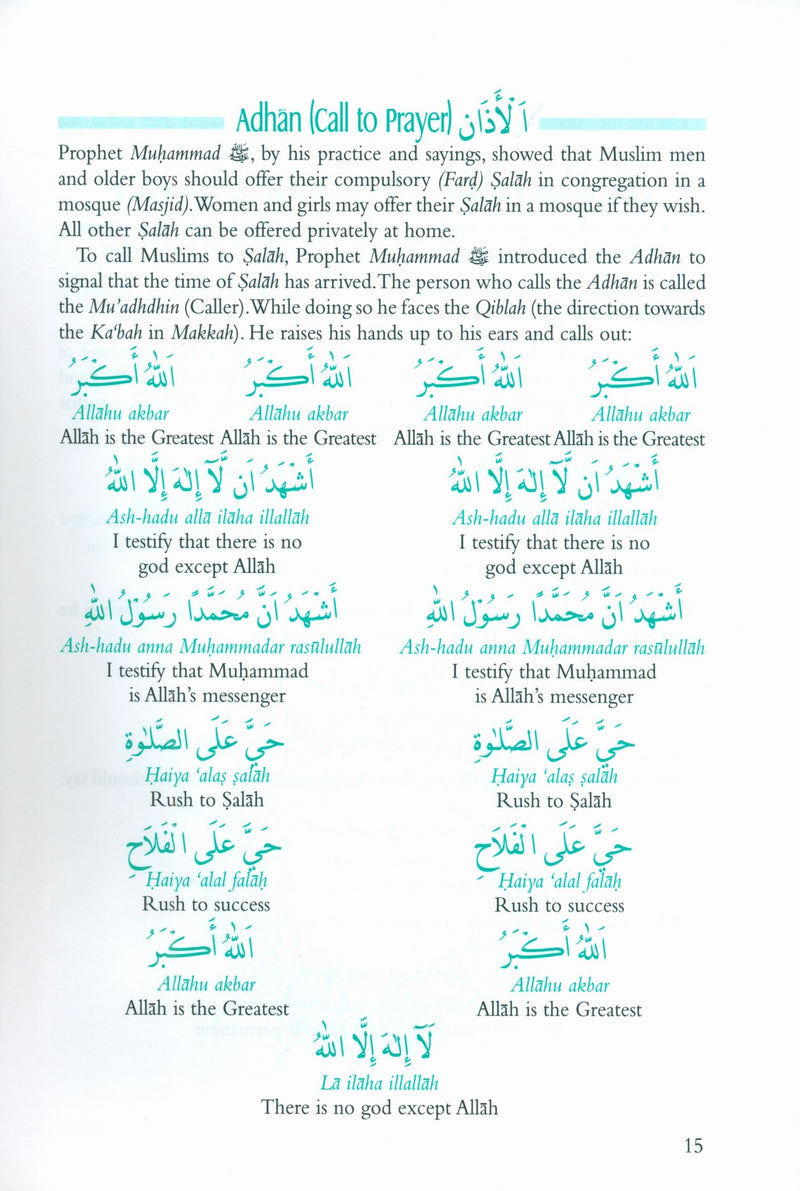 Adhān (Call to Prayer) اَلْأَذَان
Prophet Muḥammad ﷺ, by his practice and sayings, showed that Muslim men
and older boys should offer their compulsory (Farḍ) Ṣalāh in congregation in a
mosque (Masjid). Women and girls may offer their Ṣalāh in a mosque if they wish.
All other Ṣalāh can be offered privately at home.
To call Muslims to Ṣalāh, Prophet Muḥammad ﷺ introduced the Adhān to
signal that the time of Ṣalāh has arrived. The person who calls the Adhān is called
the Mu’adhdhin (Caller). While doing so he faces the Qiblah (the direction towards
the Ka‘bah in Makkah). He raises his hands up to his ears and calls out:
اَللّٰهُ أَكْبَرُ اَللّٰهُ أَكْبَرُ اَللّٰهُ أَكْبَرُ اَللّٰهُ أَكْبَرُ
Allāhu akbar Allāhu akbar Allāhu akbar Allāhu akbar
Allāh is the Greatest Allāh is the Greatest Allāh is the Greatest Allāh is the Greatest
أَشْهَدُ اَن لَّآ إِلٰهَ إِلَّا اللّٰهُ أَشْهَدُ اَن لَّآ إِلٰهَ إِلَّا اللّٰهُ
Ash-hadu allā ilāha illallāh Ash-hadu allā ilāha illallāh
I testify that there is no I testify that there is no
god except Allāh god except Allāh
أَشْهَدُ أَنَّ مُحَمَّدًا رَسُوْلُ اللّٰهِ أَشْهَدُ أَنَّ مُحَمَّدًا رَسُوْلُ اللّٰهِ
Ash-hadu anna Muḥammadar rasūlullāh Ash-hadu anna Muḥammadar rasūlullāh
I testify that Muḥammad I testify that Muḥammad
is Allāh’s messenger is Allāh’s messenger
حَيَّ عَلَى الصَّلٰوةِ حَيَّ عَلَى الصَّلٰوةِ
Ḥaiya ‘alaṣ ṣalāh Ḥaiya ‘alaṣ ṣalāh
Rush to Ṣalāh Rush to Ṣalāh
حَيَّ عَلَى الْفَلَاحِ حَيَّ عَلَى الْفَلَاحِ
Ḥaiya ‘alal falāḥ Ḥaiya ‘alal falāḥ
Rush to success Rush to success
اَللّٰهُ أَكْبَرُ اَللّٰهُ أَكْبَرُ
Allāhu akbar Allāhu akbar
Allāh is the Greatest Allāh is the Greatest
لَآ إِلٰهَ إِلَّا اللّٰهُ
Lā ilāha illallāh
There is no god except Allāh
15